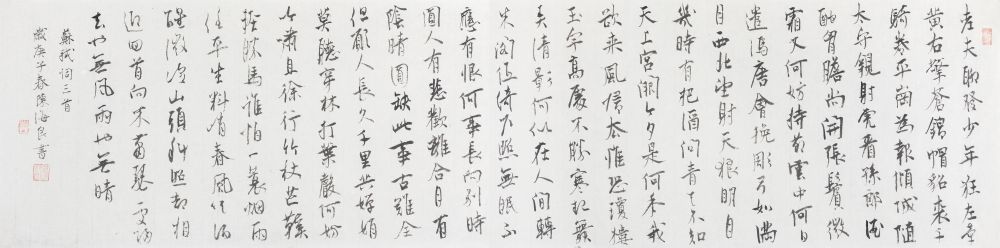 老夫聊發少年狂左牽
黃右擎蒼錦帽貂裘千
騎卷平崗為報傾城隨
太守親射虎看孫郎酒
酣胸膽尚開張鬢微
霜又何妨持節雲中何日
遣馮唐會挽雕弓如滿
月西北望射天狼明月
幾時有把酒問青天不知
天上宮闕今夕是何年我
欲乘風歸去惟恐瓊樓
玉宇高處不勝寒起舞
弄清影何似在人間轉
朱閣低綺戶照無眠不
應有恨何事長向別時
圓人有悲歡離合月有
陰晴圓缺此事古難全
但願人長久千里共嬋娟
莫聽穿林打葉聲何妨
吟嘯且徐行竹杖芒鞵
輕勝馬誰怕一蓑烟雨
任平生料峭春風吹酒
醒微冷山頭斜照却相
迎回首向來蕭瑟處歸
去也無風雨也無晴
蘇軾詞三首
歲庚子春陳海良書